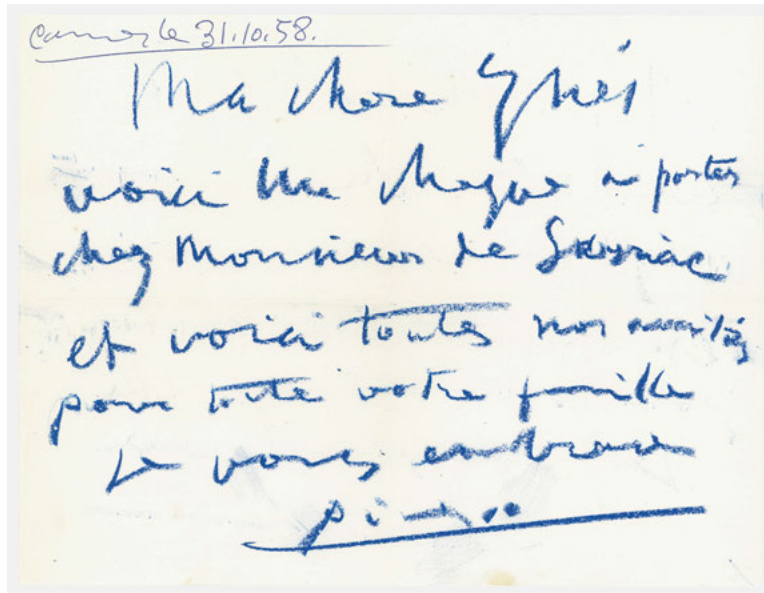 Cannes le 31.10.58.
Ma chere Ynés
voici un cheque a porter
chez Monsieur de
et voici toutes nos amitiés
pour toute votre famille
Je vous embrasse
Picasso